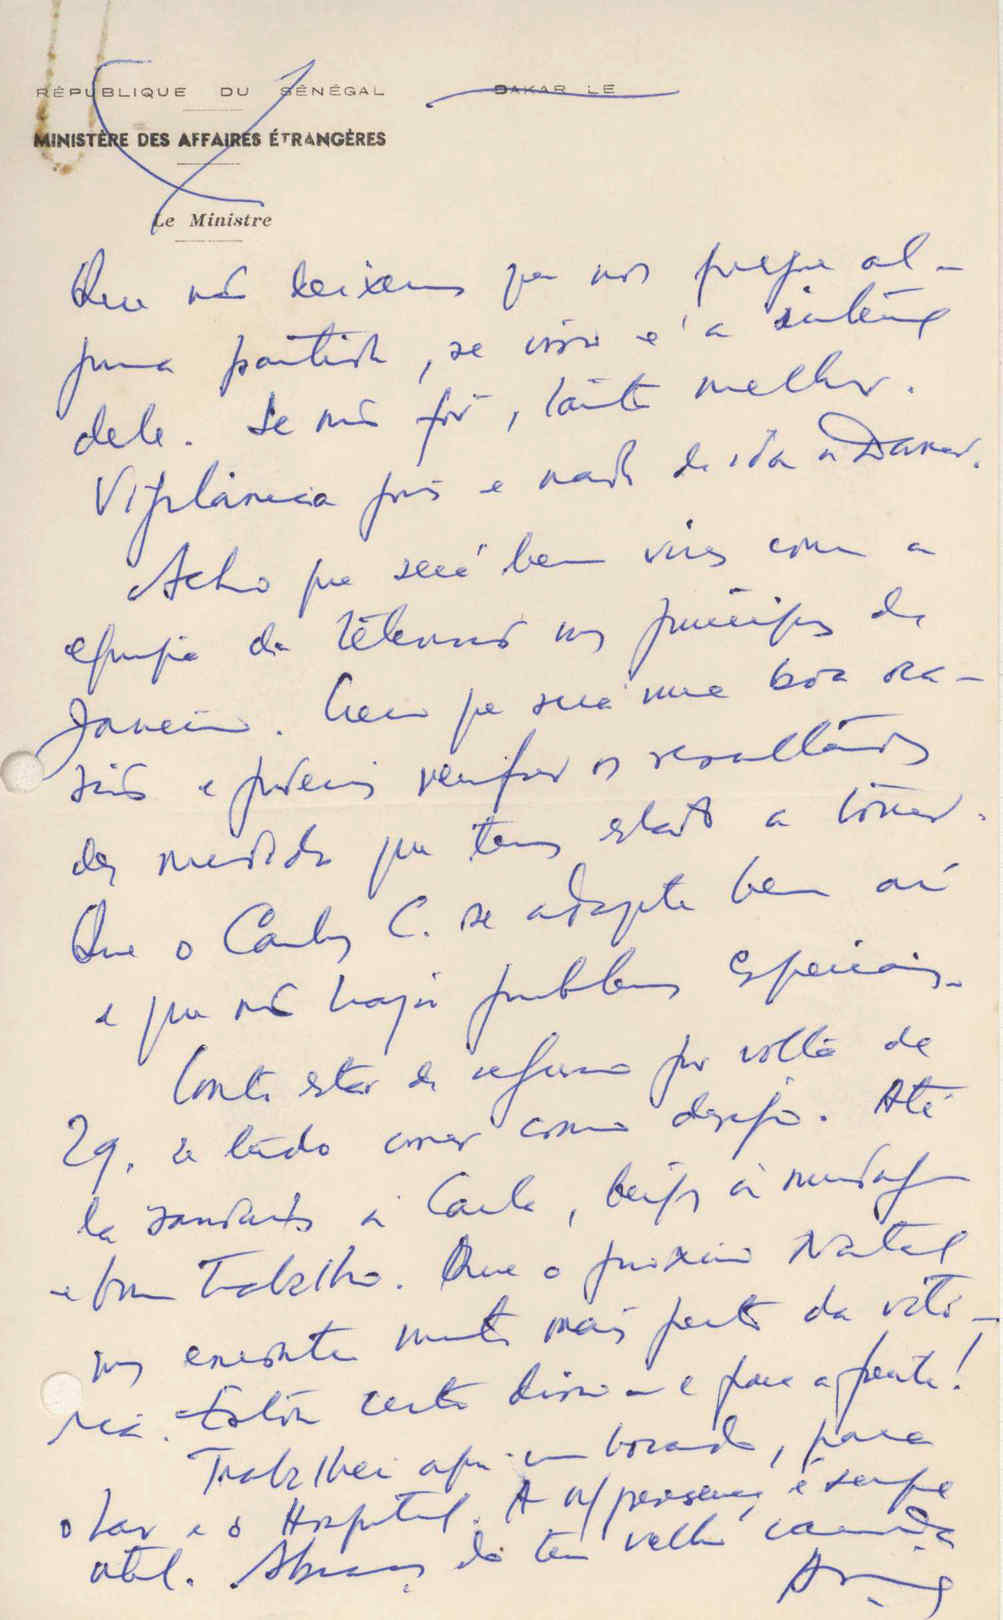 RÉPUBLIQUE DU SÉNÉGAL
DAKAR LE
MINISTÈRE DES AFFAIRES ÉTRANGÈRES
Le Ministre
Que não deixemos que nos pregue al-
guma partida, se isso é a intenção
dele. Se não fôr, tanto melhor.
Vigilância pois e nada de ida a Dakar.
Acho que será bem vires com a
equipa da televisão nos princípios de
Janeiro. Creio que será uma boa oca-
sião e poderás verificar os resultados
das medidas que temos estado a tomar.
Que o Carlos C. se adapte bem aí
e que não haja problemas especiais.
Conto estar de regresso por volta de
29, se tudo correr como desejo. Até
lá saudades à Carla, beijos à
e bom trabalho. Que o próximo Natal
nos encontre muito mais perto da vitó-
ria. Estou certo disso e para a frente!
Trabalhei aqui um bocado, para
o Lar e o Hospital. A n/ presença é sempre
útil. Abraços do teu velho camarada